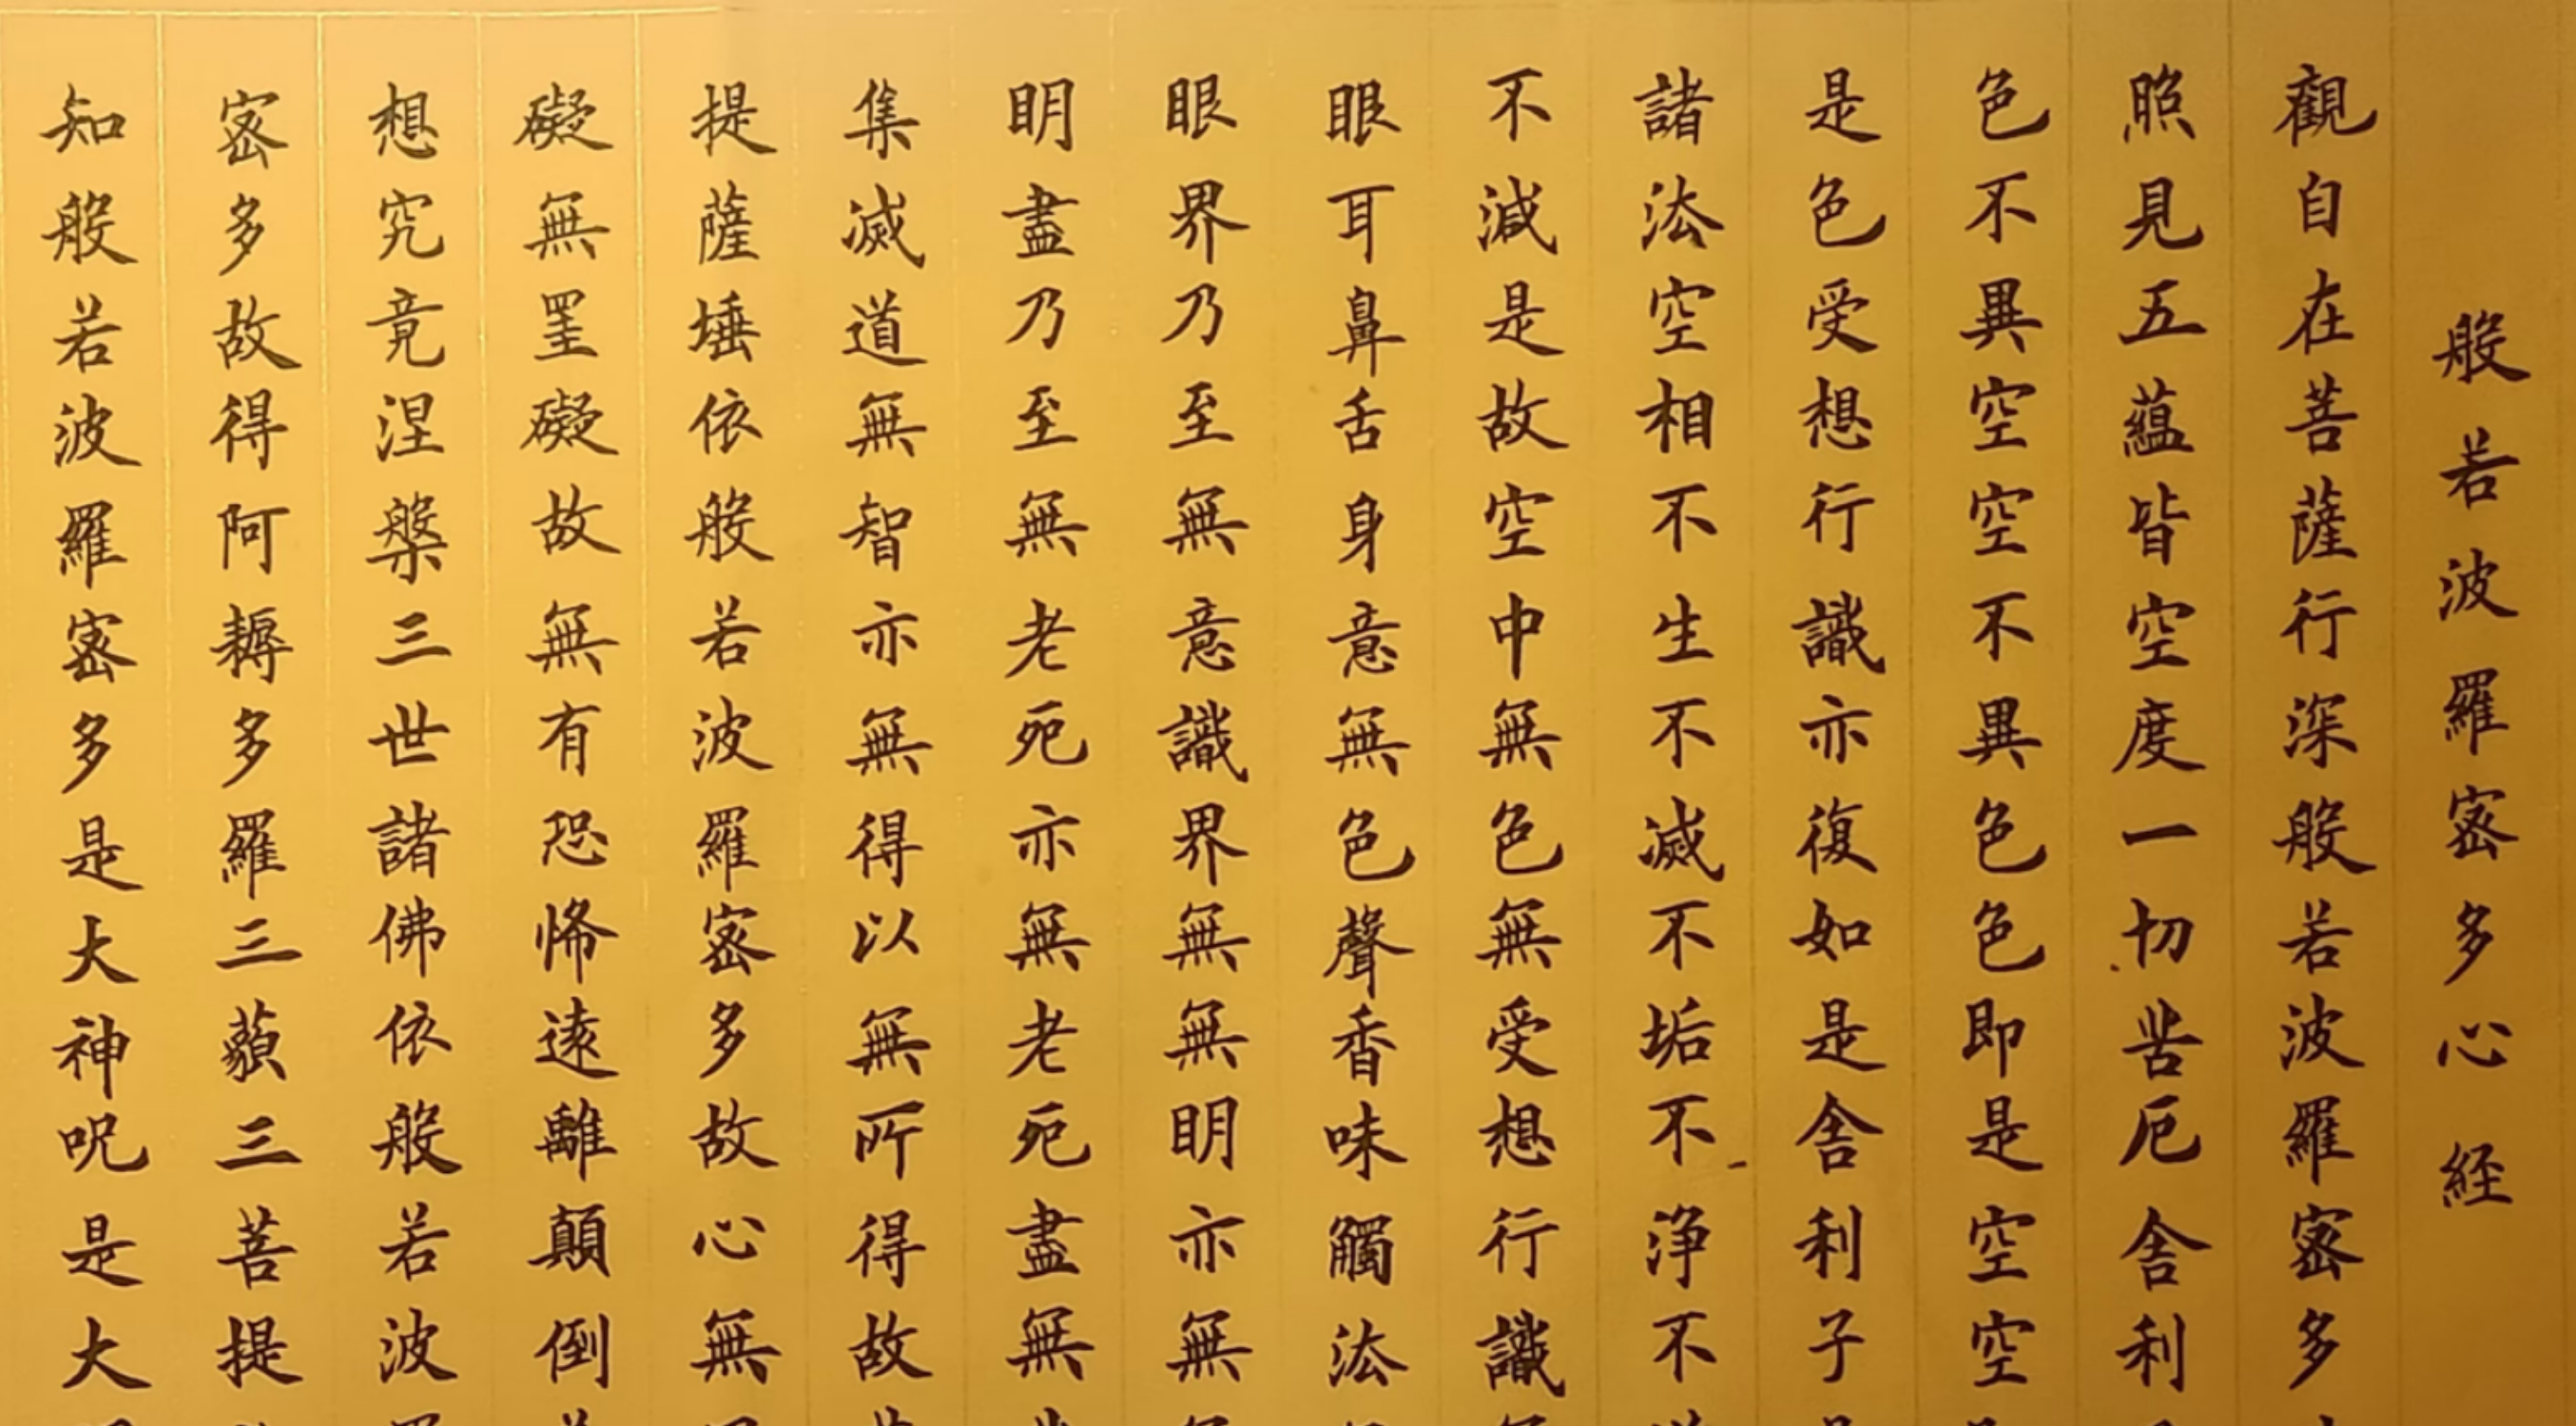 般若波羅宻多心経
觀自在菩薩行深般若波羅宻多
照見五蘊皆空度一切苦厄舍利
色不異空空不異色色即是空空
是色受想行識亦復如是舍利子
諸法空相不生不滅不垢不淨不
不減是故空中無色無受想行識
眼耳鼻舌身意無色聲香味觸法
眼界乃至無意識界無無明亦無
明盡乃至無老死亦無老死盡無
集滅道無智亦無得以無所得故
提薩埵依般若波羅宻多故心無
礙無罣礙故無有恐怖遠離顛倒
想究竟涅槃三世諸佛依般若波
宻多故得阿耨多羅三藐三菩提
知般若波羅宻多是大神呪是大